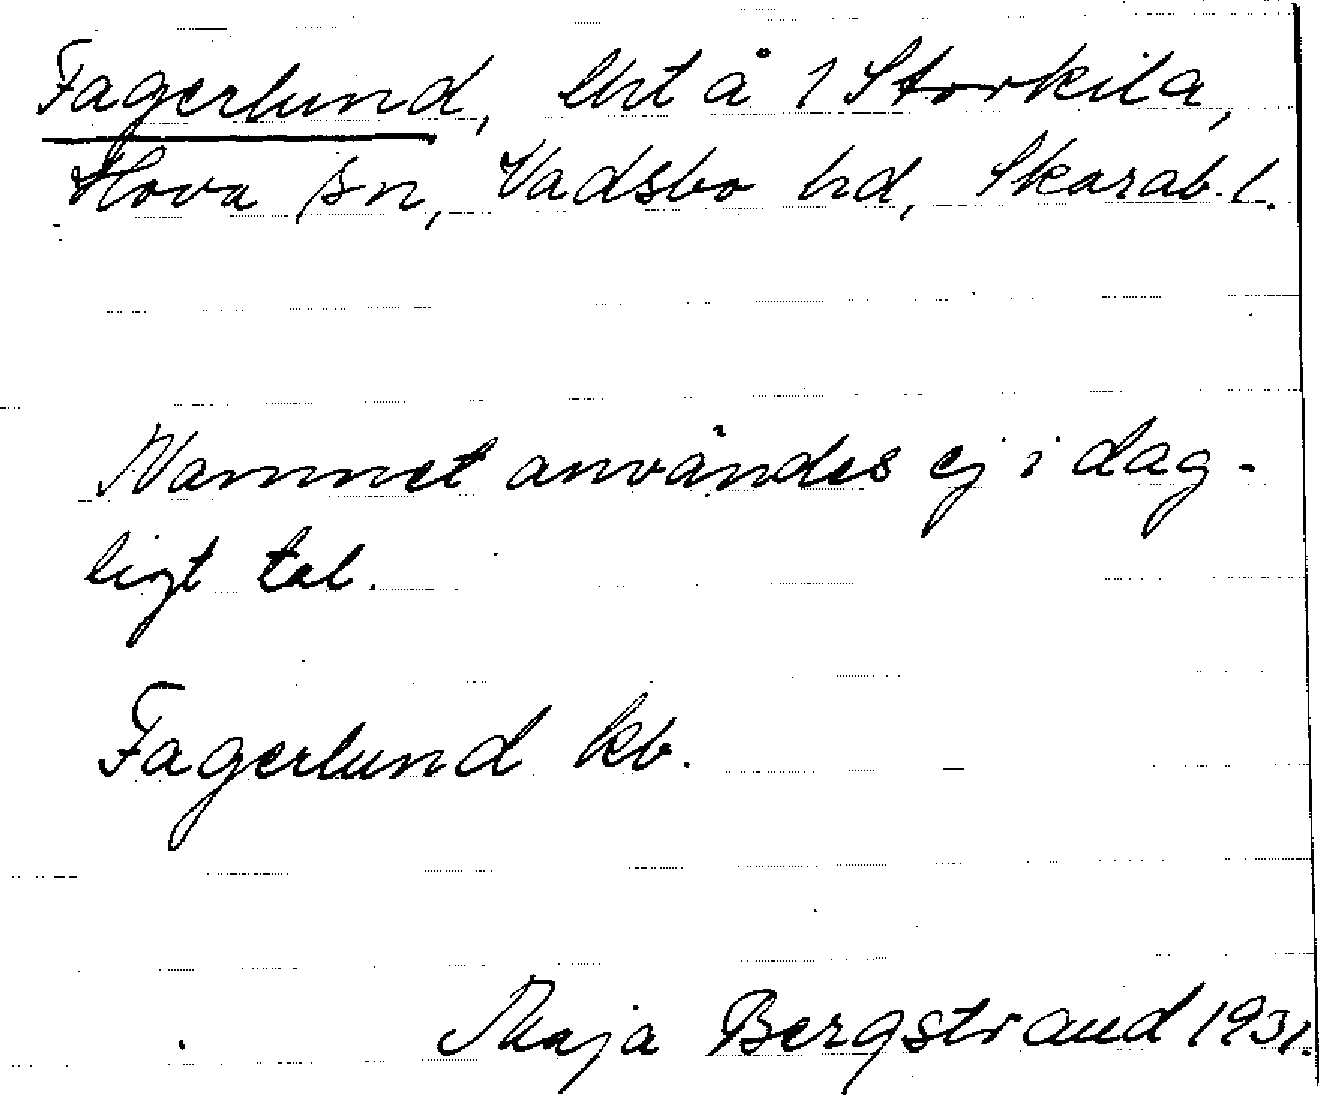 Fagerlund, lht å 1 Storkila,
Hova sn, Vadsbo hd, Skarab. l.
Namnet användes ej i dag-
ligt tal.
Fagerlund kb.
Maja Bergstrand 1931.